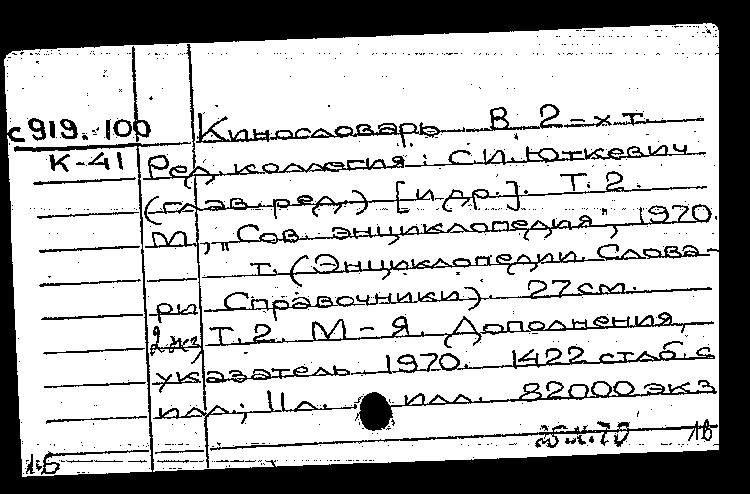 с919.100 Кинословарь В 2-х т.
К-41 Ред. коллегия: С.И. Юткевич
(глав. ред.) [и др.]. Т. 2.
М., "Сов. энциклопедия", 1970.
т. (Энциклопедии. Слова-
ри Справочники). 27 см.
2 экз Т. 2. М - Я. Дополнения,
указатель. 1970. 1422 стлб. с
илл.; 11 л. илл. 82000 экз
70 1в